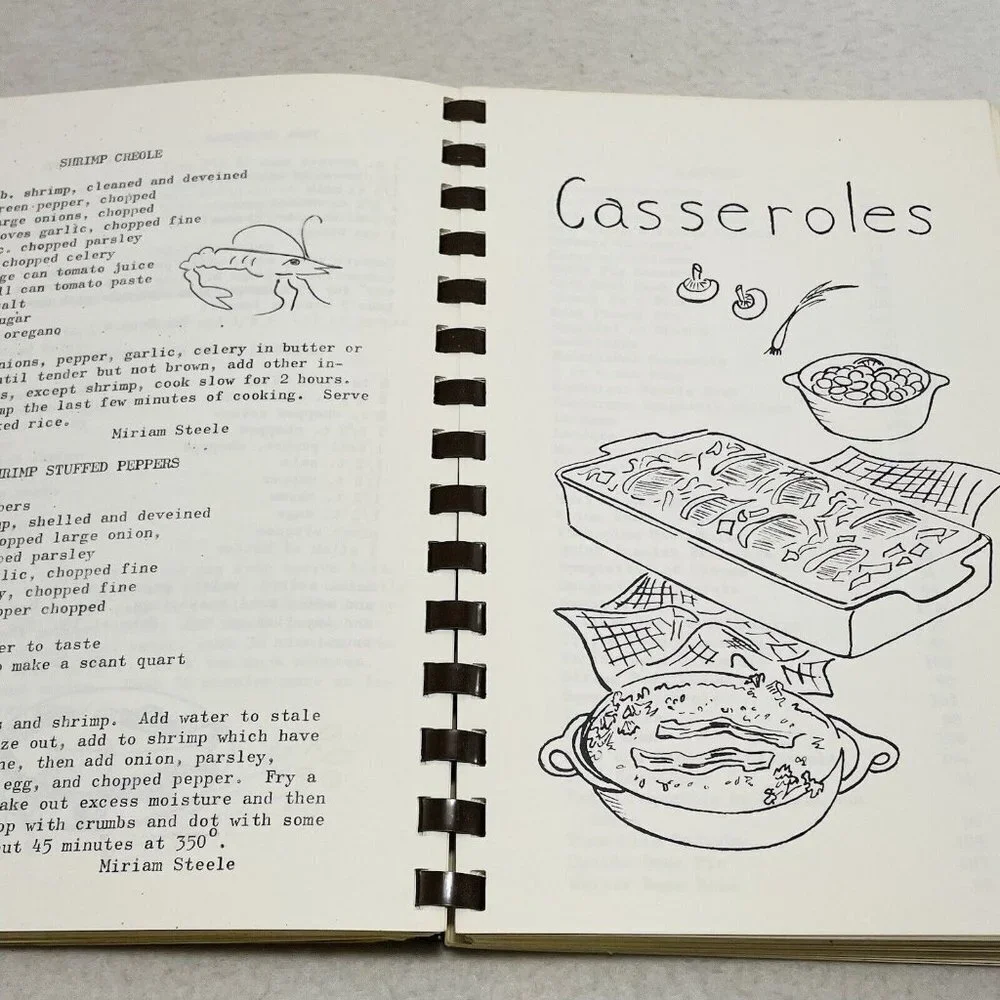 SHRIMP CREOLE
b. shrimp, cleaned and deveined
reen pepper, chopped
arge onions, chopped
oves garlic, chopped fine
c. chopped parsley
chopped celery
ge can tomato juice
ll can tomato paste
alt
ugar
oregano
nions, pepper, garlic, celery in butter or
til tender but not brown, add other in-
s, except shrimp, cook slow for 2 hours.
mp the last few minutes of cooking. Serve
ed rice.
Miriam Steele
HRIMP STUFFED PEPPERS
pers
mp, shelled and deveined
opped large onion,
ed parsley
lic, chopped fine
y, chopped fine
pper chopped
er to taste
o make a scant quart
s and shrimp. Add water to stale
ze out, add to shrimp which have
ne, then add onion, parsley,
egg, and chopped pepper. Fry a
ake out excess moisture and then
op with crumbs and dot with some
ut 45 minutes at 350°.
Miriam Steele
Casseroles